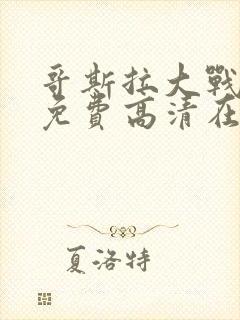 哥斯拉大戰
免費高清在
夏洛特